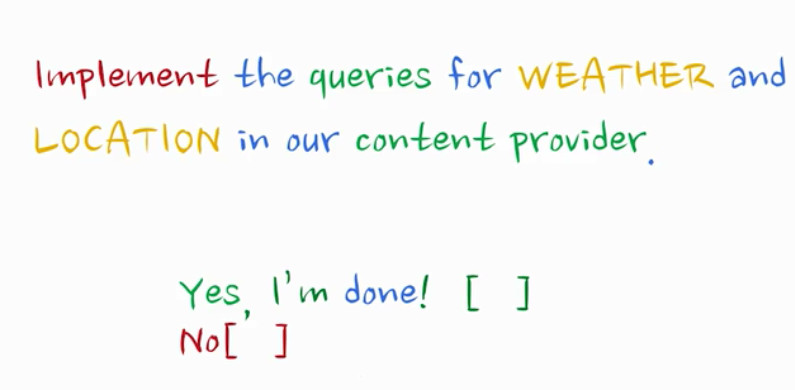 Implement the queries for WEATHER and
LOCATION in our content provider.
Yes, I'm done! [ ]
No[ ]